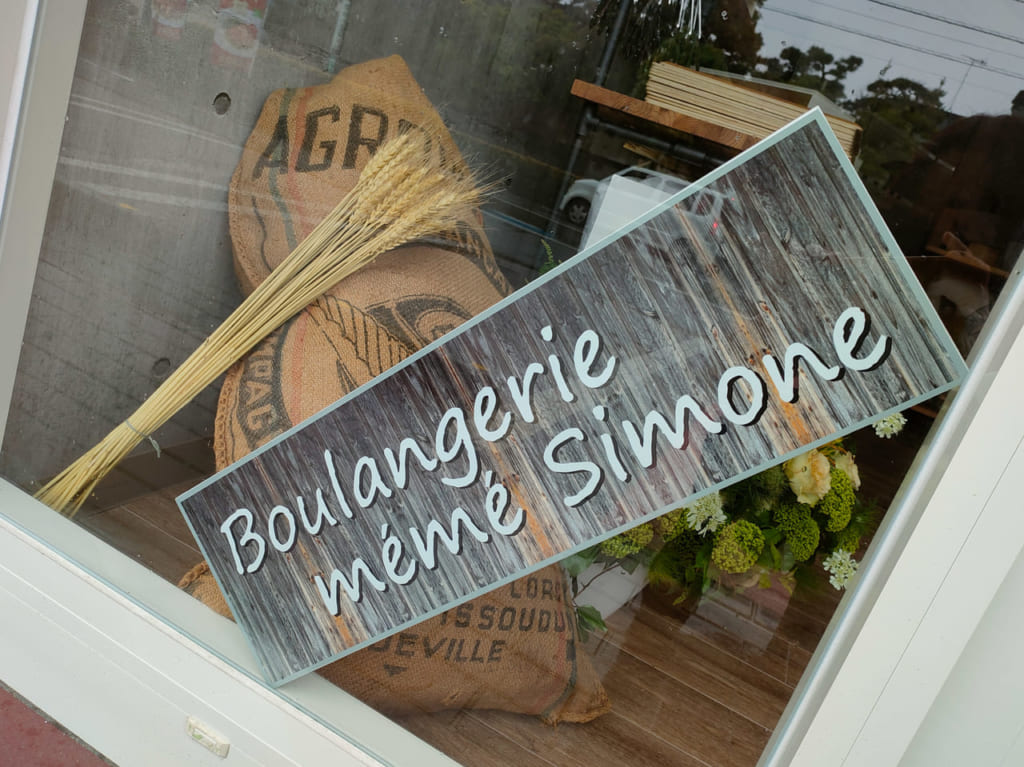 AGR
Boulangerie
mémé Simone
ISSOUDU
DEVILLE